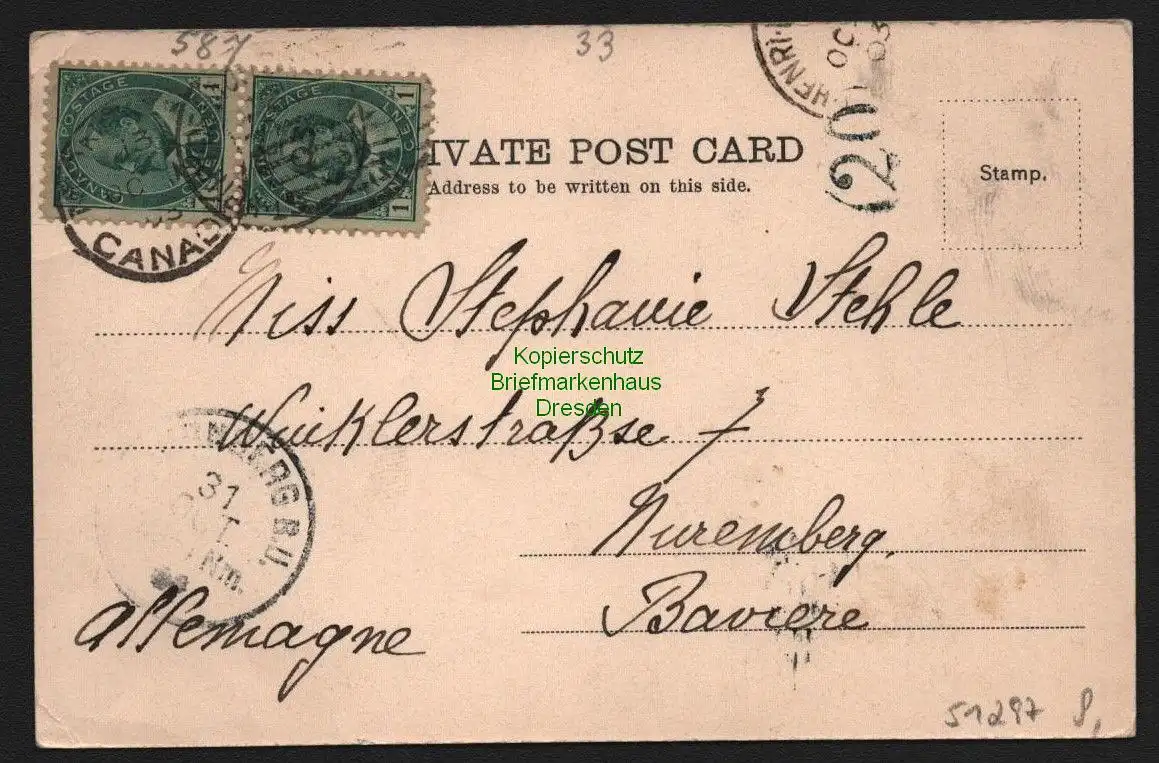 587
33
HENRI
OC
03
CANADA POSTAGE
ONE CENT
1
CANADA POSTAGE
ONE CENT
1 1
CANADA
IVATE POST CARD
Address to be written on this side.
(20
Stamp.
Miss Stephanie Stehle
Kopierschutz
Briefmarkenhaus
Dresden
Winklerstraßse 7
NBERG B.U.
31
OCT
Nm.
Nuremberg,
Bavière
Allemagne
51297